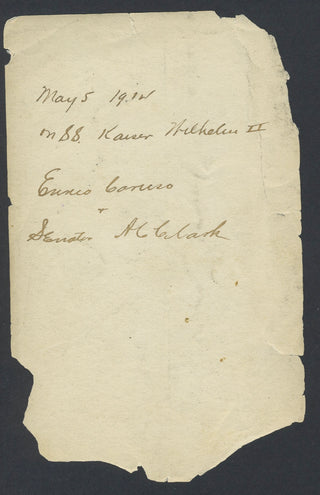 May 5 1912
on SS. Kaiser Wilhelm II
Enrico Caruso
+
Senator A C Clark